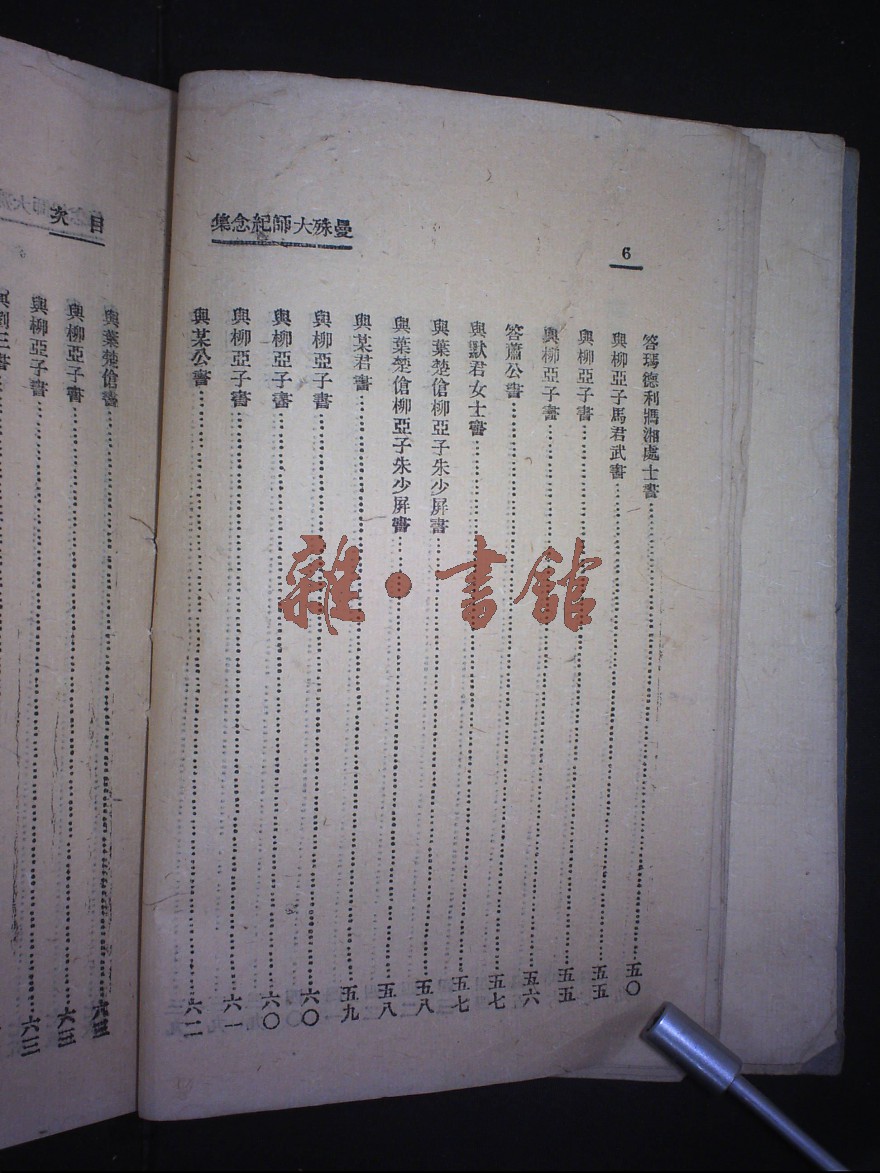 曼殊大師紀念集
6
答瑪德利鴅湘處士書……五〇
與柳亞子馬君武書……五五
與柳亞子書……五五
與柳亞子書……五六
答蕭公書……五七
與默君女士書……五七
與葉楚傖柳亞子朱少屏書……五八
與葉楚傖柳亞子朱少屏書……五八
與某君書……五九
與柳亞子書……六〇
與柳亞子書……六〇
與柳亞子書……六一
與某公書……六二
目次
與葉楚傖書……六三
與柳亞子書……六三
與柳亞子書……六三
與劉三書
雜·書館